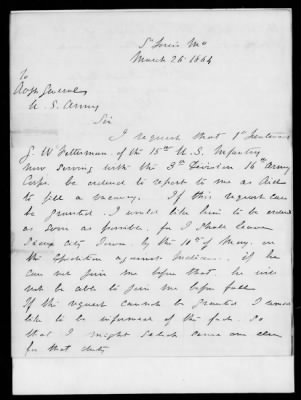 St Louis Mo
March 26 1864
To
Adjt General
U. S. Army
Sir
I request that 1st Lieutenant
G W Fetterman of the 18th U. S. Infantry
now serving with the 3rd Division 16th Army
Corps be ordered to report to me as Aid
to fill a vacancy. If this request can
be granted I would like him to be ordered
as soon as possible, for I shall leave
Sioux City Iowa by the 10th of May, on
the Expedition against Indians. if he
can not join me before that, he will
not be able to join me before fall
If the request cannot be granted I would
like to be informed of the fact. So
that I might select some one else
for that duty